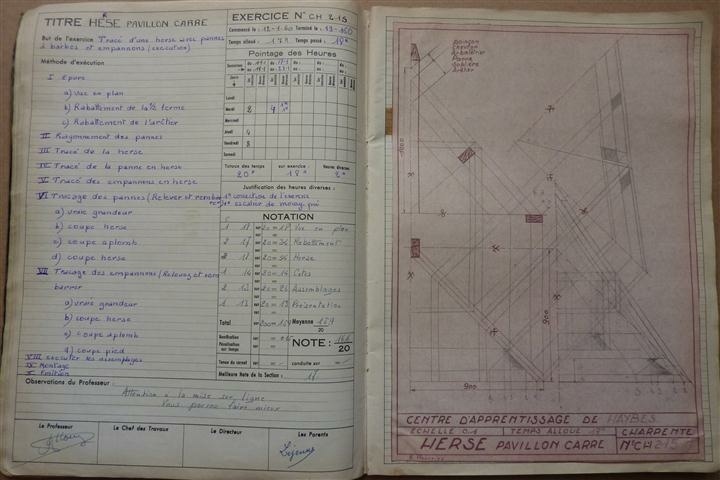 TITRE HERSE PAVILLON CARRE
But de l'exercice Tracé d'une herse avec pannes
à barbes et empannons (exécution)
Méthode d'exécution
I Epure
a) Vue en plan
b) Rabattement de la 1/2 ferme
c) Rabattement de l'arêtier
II Rayonnement des pannes
III Tracé de la herse
IV Tracé de la panne en herse
V Tracé des empannons en herse
VI Traçage des pannes (Relever et rembar
rer)
a) vraie grandeur
b) coupe herse
c) coupe aplomb
d) coupe herse
VII Traçage des empannons (Relever et rem
barrer
a) vraie grandeur
b) coupe herse
c) coupe aplomb
d) coupe pied
VIII Exécuter les assemblages
IX Montage
X Finition
Observations du Professeur :
Attention à la mise sur ligne
Vous pouvez faire mieux
Le Professeur
Le Chef des Travaux
Le Directeur
Les Parents
Lejeune
EXERCICE N° CH 215
Commencé le : 12-1-60 Terminé le :
Temps alloué : 17h Temps passé : 18h
Pointage des Heures
Semaines
Jours
Lundi
Mardi 2
Mercredi
Jeudi 4
Vendredi 8
Samedi
Totaux des temps sur exercice : Heures diverses
20h 18h 2h
Justification des heures diverses :
1h correction de l'exercice
1h escalier de
NOTATION
1 17 sur 20 = 17 Vue en plan
2 17 sur 20 = 34 Rabattement
2 17 sur 20 = 34 Herse
1 14 sur 20 = 14 Cotes
2 13 sur 20 = 26 Assemblages
1 13 sur 20 = 13 Présentation
Total sur 200 = 159 Moyenne 15,9
20
Bonification
Pénalisation
sur temps
NOTE :
20
Tenue du carnet sur conduite sur
Meilleure Note de la Section : 17
Poinçon
Chevron
Arbalétrier
Panne
Sablière
Arêtier
1000
900
900
CENTRE D'APPRENTISSAGE DE HAYBES
ECHELLE 0.1 TEMPS ALLOUE 17h CHARPENTE
HERSE PAVILLON CARRE N° CH 215